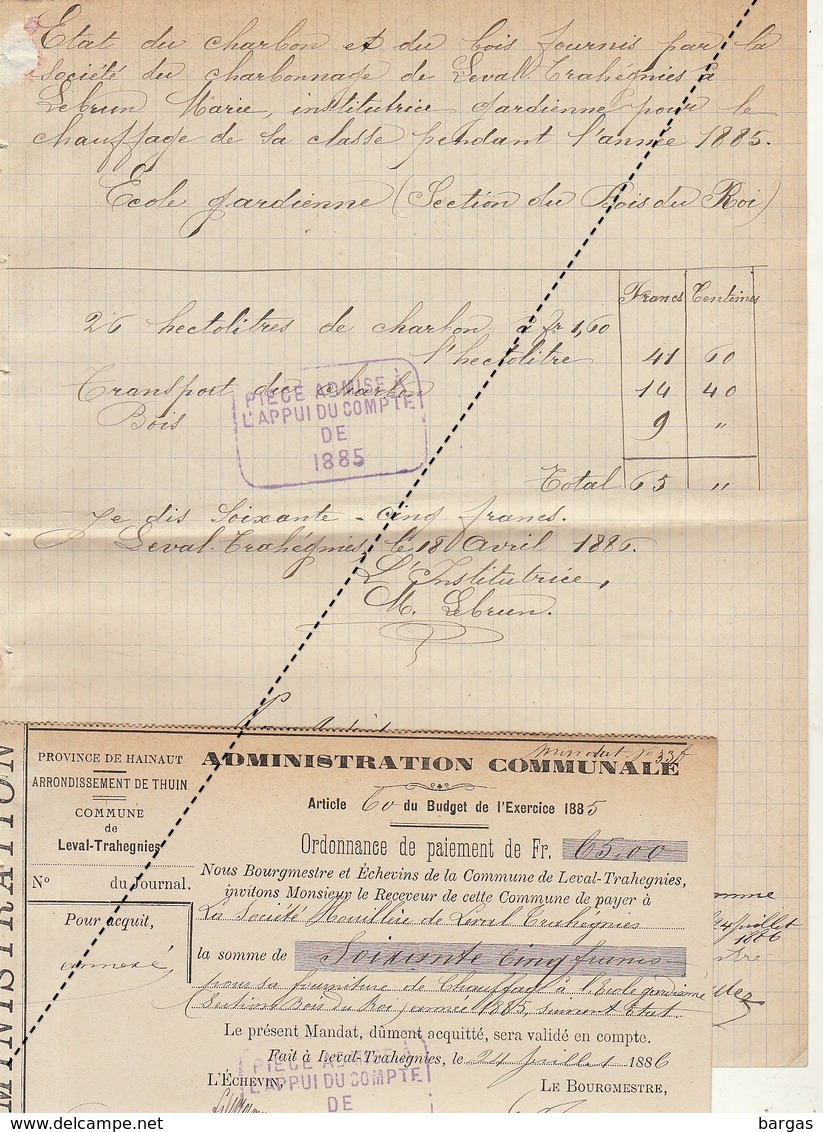 Etat du charbon et du bois fournis par la
société du charbonnage de Leval-Trahégnies à
Lebrun Marie, institutrice gardienne pour le
chauffage de sa classe pendant l'année 1885.
Ecole gardienne (Section du Bois du Roi)
Francs Centimes
26 hectolitres de charbon à fr 1,60
l'hectolitre 41 60
Transport du charbon 14 40
Bois 9 "
Total 65 "
PIÈCE ADMISE À
L'APPUI DU COMPTE
DE
1885
Je dis Soixante-cinq francs.
Leval-Trahégnies, le 18 Avril 1886.
L'Institutrice,
M. Lebrun.
MINISTRATION
PROVINCE DE HAINAUT
ARRONDISSEMENT DE THUIN
COMMUNE
de
Leval-Trahegnies
N° du Journal.
Pour acquit,
annexé
mandat n° 33
ADMINISTRATION COMMUNALE
Article 60 du Budget de l'Exercice 1885
Ordonnance de paiement de Fr. 65,00
Nous Bourgmestre et Échevins de la Commune de Leval-Trahegnies,
invitons Monsieur le Receveur de cette Commune de payer à
La Société Houillère de Leval Trahégnies
la somme de Soixante cinq francs
pour sa fourniture de Chauffage à l'Ecole gardienne
(Section Bois du Roi) année 1885, suivant Etat.
Le présent Mandat, dûment acquitté, sera validé en compte.
Fait à Leval-Trahegnies, le 24 Juillet 1886
L'ÉCHEVIN, LE BOURGMESTRE,
PIÈCE ADMISE À
L'APPUI DU COMPTE
DE
24 Juillet
1886
bargas